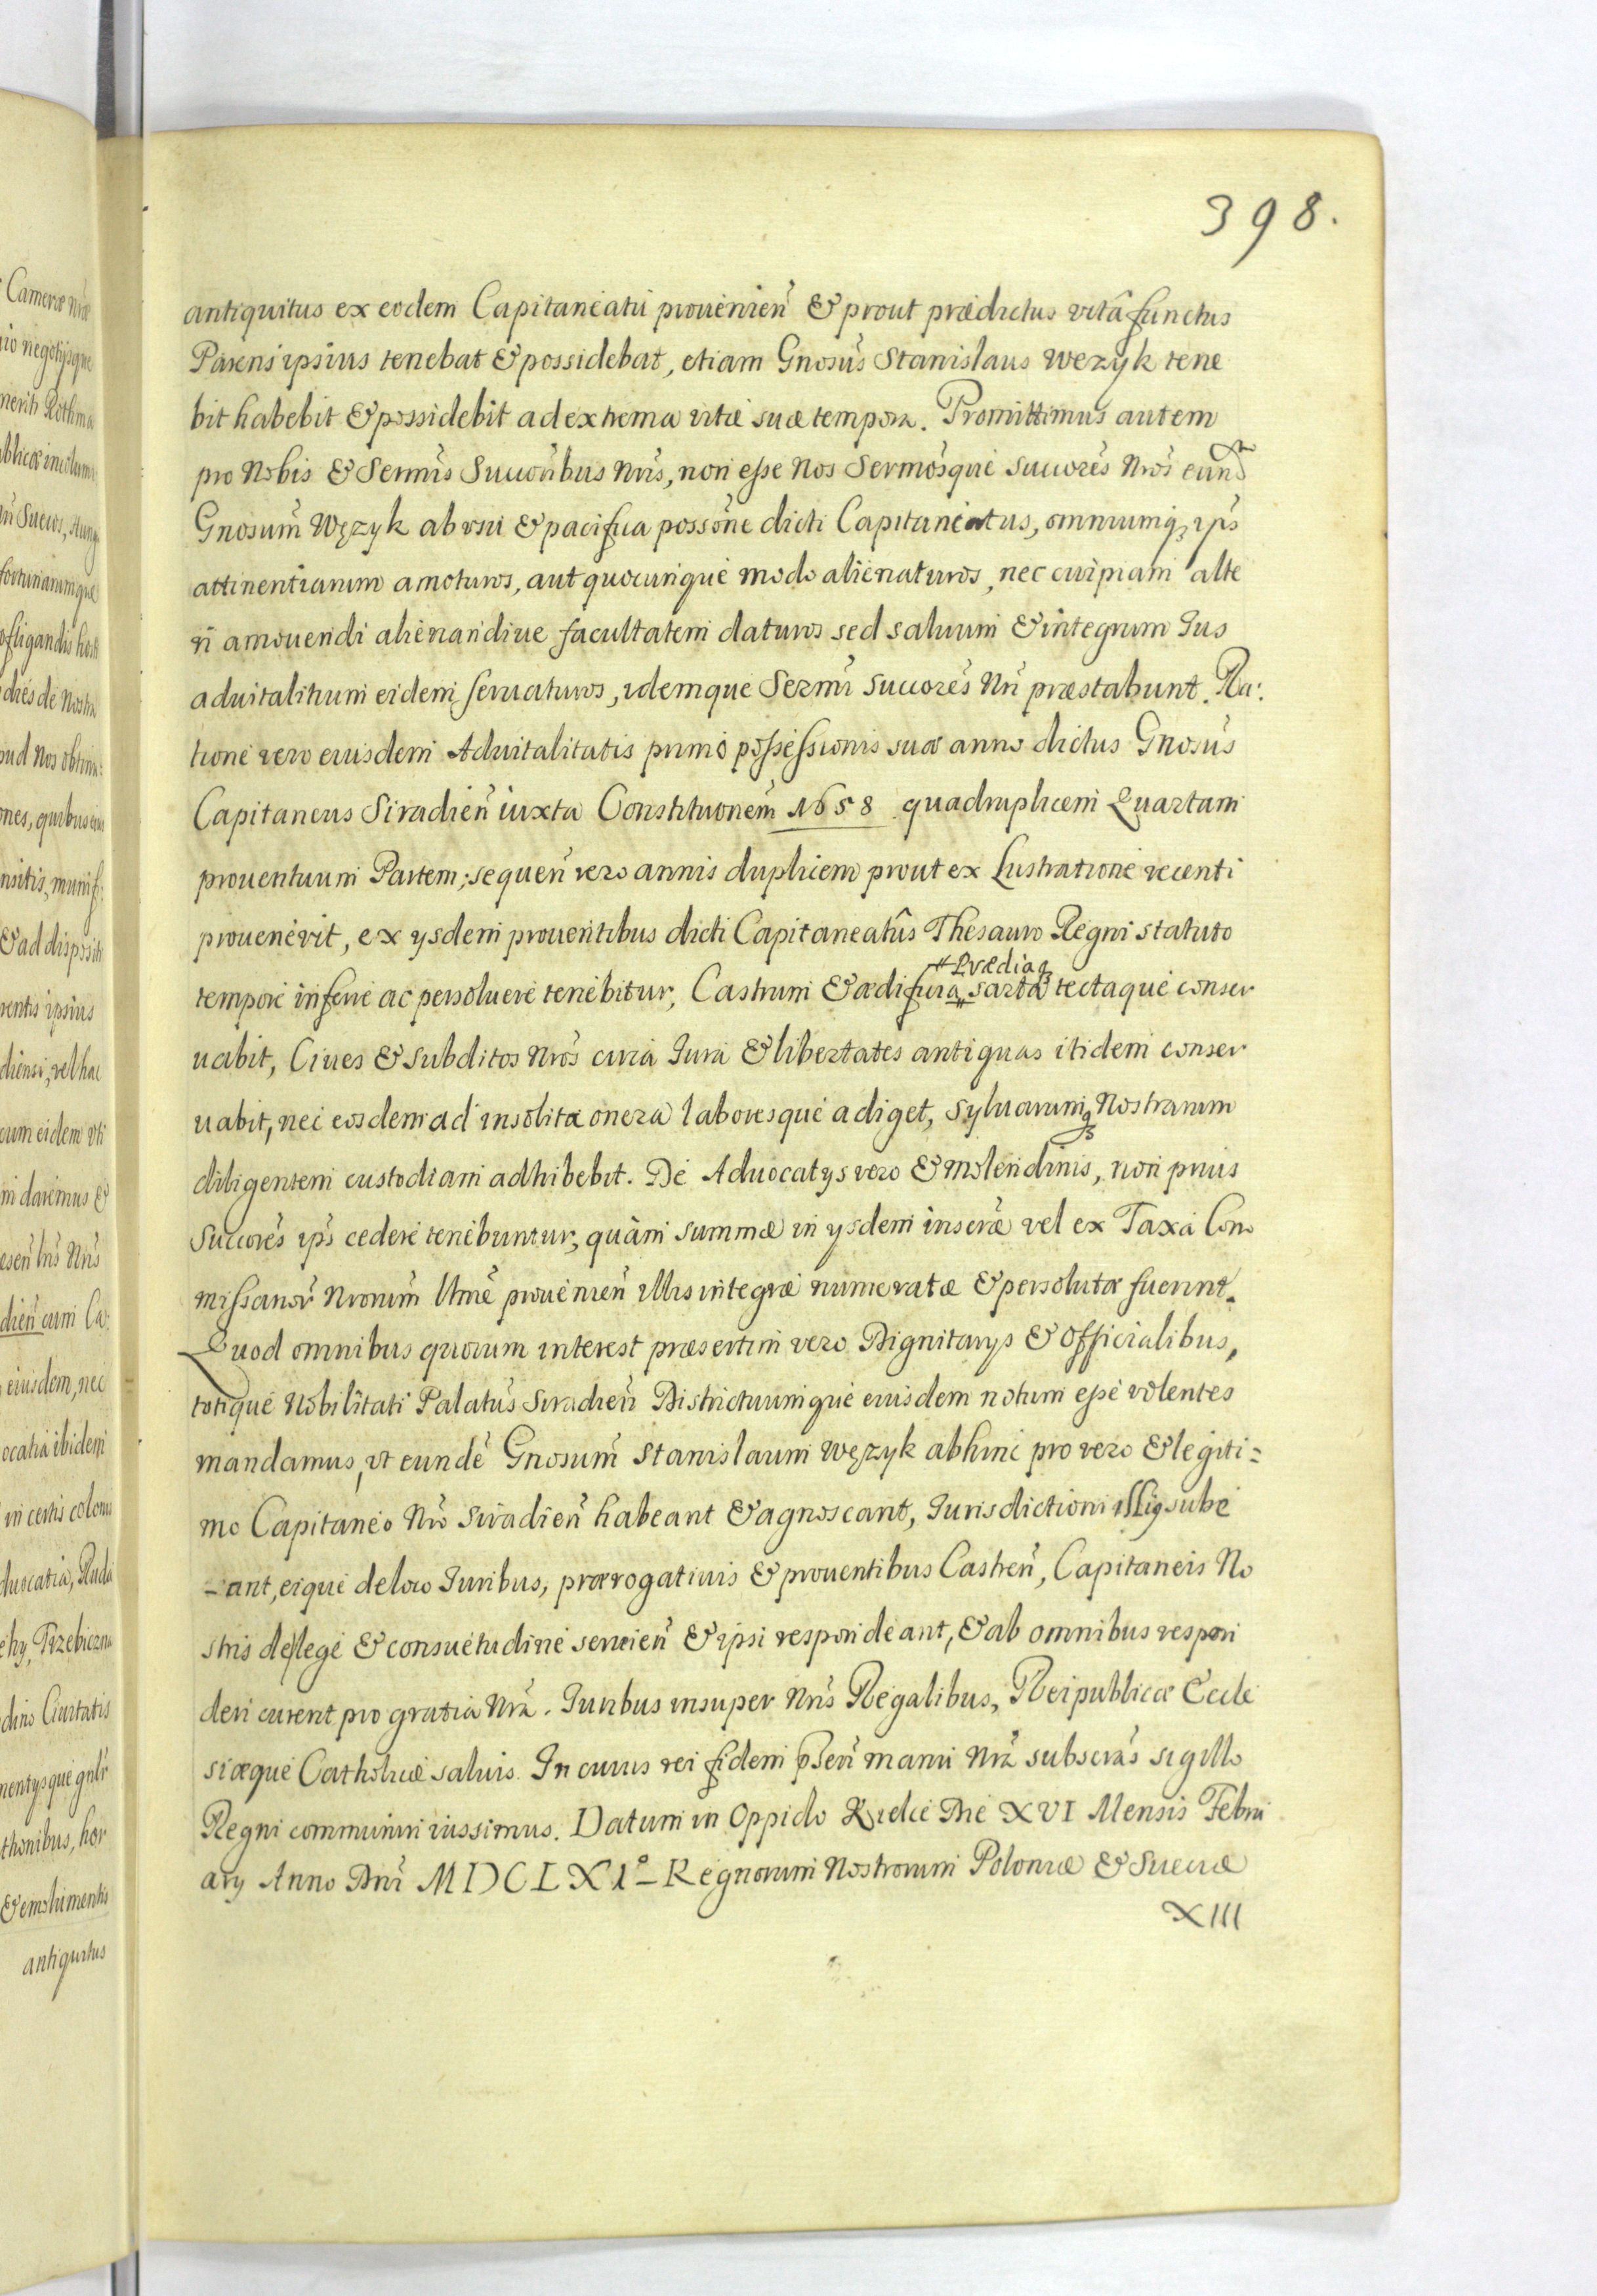 398.
antiquitus ex eodem Capitaneatu prouenien̄ & prout prædictus vitâ functus
Parens ipsius tenebat & possidebat, etiam Gnosūs Stanislaus Wezyk tene
bit habebit & possidebit ad extrema vitæ suæ tempora. Promittimus autem
pro Nobis & Sermīs Succorībus Nrīs, non esse Nos Sermosque succorēs Nrōs eund
Gnosum̄ Wężyk ab vsu & pacifica possōne dicti Capitaneatus, omniumq₃ ips̄
attinentiarum amoturos, aut quocunque modo alienaturos, nec cuipiam alte
ri amouendi alienandiue facultatem daturos sed saluum & integrum Jus
aduitalitium eidem seruaturos, idemque Sermī Succorēs Nrī præstabunt. Ra:
tione vero eiusdem Aduitalitatis primo possessionis suæ anno dictus Gnosūs
Capitaneus Siradien̄ iuxta Constitutionem̄ 1658 quadruplicem Quartam
prouentuum Partem; sequen̄ vero annis duplicem prout ex Lustratione recenti
prouenerit, ex ysdem prouentibus dicti Capitaneatûs Thesauro Regni statuto
# Prædiaq₃
tempore inferre ac persoluere tenebitur, Castrum & ædificia sarta tectaque conser
uabit, Ciues & Subditos Nrōs circa Jura & libertates antiquas itidem conser
uabit, nec eosdem ad insolita onera laboresque adiget, Syluarumq₃ Nostrarum
diligentem custodiam adhibebit. De Aduocatys vero & Molendinis, non prius
Succorēs ips̄ cedere tenebuntur, quàm summæ in ysdem inscræ vel ex Taxa Com
missarior̄ Nrorum̄ Ulmē prouenien̄ illis integræ numeratæ & persolutæ fuerint.
Quod omnibus quorum interest præsertim vero Dignitarys & Officialibus,
totique Nobilitati Palatūs Siradien̄ Districtuumque eiusdem notum esse volentes
mandamus, vt eundē Gnosum̄ Stanislaum Wężyk abhinc pro vero & legiti=
mo Capitaneo Nrō Siradien̄ habeant & agnoscant, Jurisdictioni illiq₃ sube
-ant, eique de loco Juribus, prærogatiuis & prouentibus Castren̄, Capitaneis No
stris de lege & consuetudine seruien̄ & ipsi respondeant, & ab omnibus respon
deri curent pro gratia Nrā. Juribus insuper Nrīs Regalibus, Reipublicæ Eccle
siæque Catholicæ saluis. In cuius rei fidem pn̄sen̄ manu Nrā subscrās sigillo
Regni communiri iussimus. Datum in Oppido Kielce Die XVI Mensis Febru
ary Anno Dnī MDCLXI° - Regnorum Nostrorum Poloniæ & Sueciæ
XIII